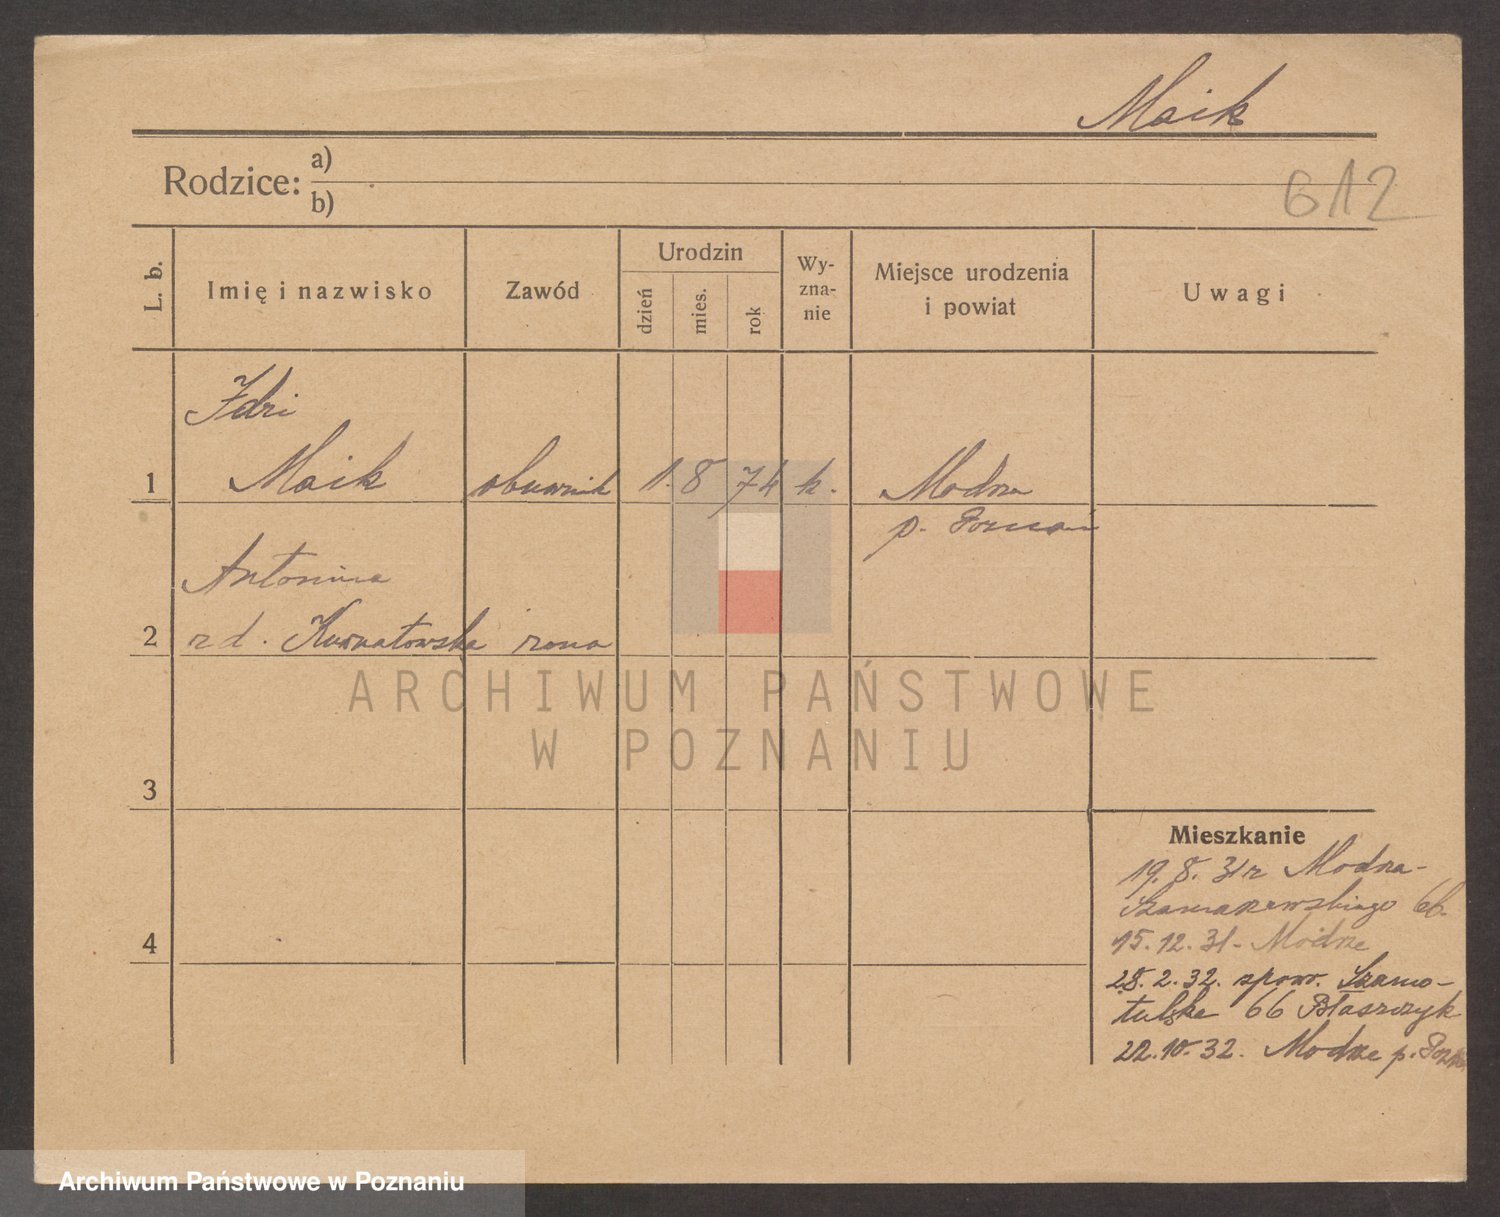 Maik
612
Rodzice: a)
b)
L. b. Imię i nazwisko Zawód Urodzin dzień mies. rok Wy-zna-nie Miejsce urodzenia i powiat Uwagi
Idzi
1 Maik obuwnik 1. 8 74 k. Modrze
p. Poznań
Antonina
2 zd. Kurnatowska żona
3
4
Mieszkanie
19. 8. 31 z Modrza-
66.
15. 12. 31 - Modrze
28. 2. 32. spow. Szamo-
tulska 66 Błaszczyk
22. 10. 32. Modrze p. Pozn.
ARCHIWUM PAŃSTWOWE
W POZNANIU
Archiwum Państwowe w Poznaniu